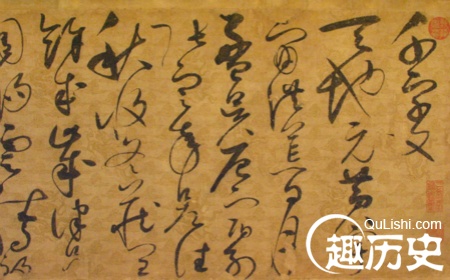 千字文
天地元黃宇
宙洪荒日月
盈昃辰宿列
張寒來暑往
秋收冬藏閏
餘成歲律呂
調陽雲騰致
QuLishi.com
趣历史